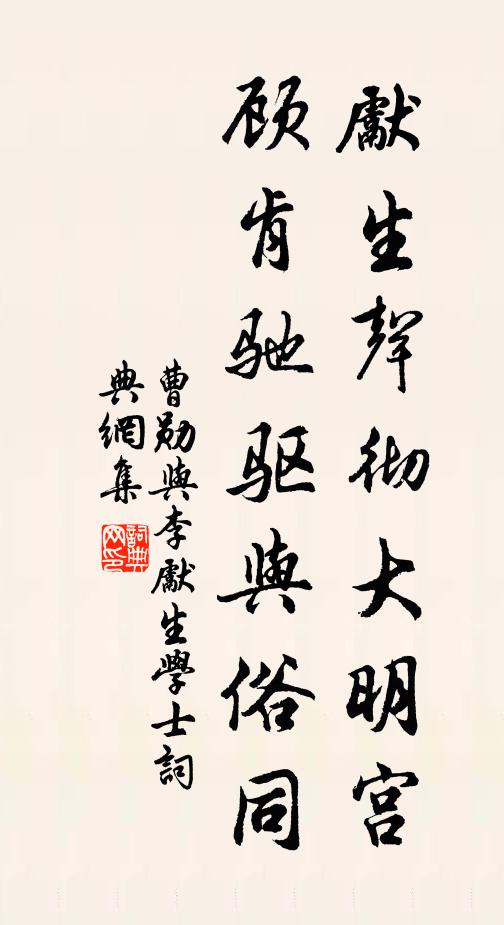 獻生聲彻大明宫
顾肯驰驱與俗同
曹勋與李獻生學士詞
典網集
詞典網印